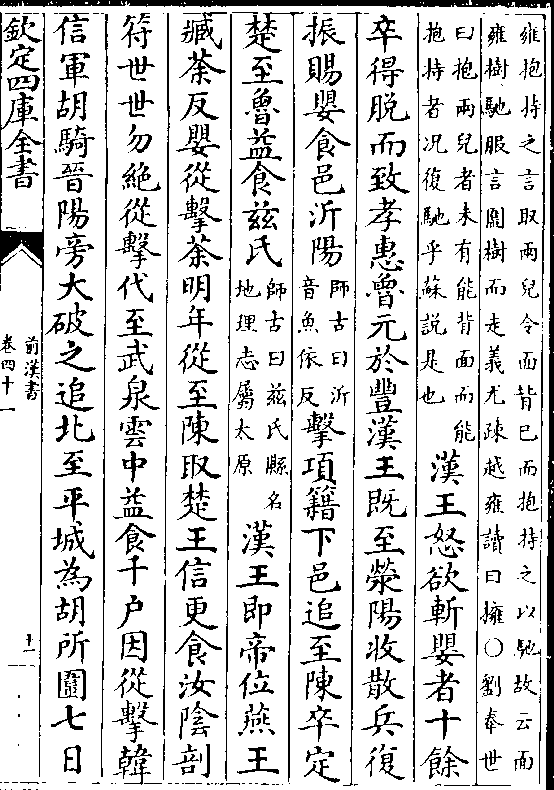 雍抱持之言取兩兒令面背已而抱持之以馳故云面
雍樹馳服言圍樹而走義尤疎越雍讀曰擁〇劉奉世
曰抱兩兒者未有能背面而能
抱持者况復馳乎蘇説是也
漢王怒欲斬嬰者十餘
卒得脱而致孝惠魯元於豐漢王既至滎陽收散兵復
振賜嬰食邑沂陽
師古曰沂
音魚依反
擊項籍下邑追至陳卒定
楚至魯益食兹氏
師古曰兹氏縣名
地理志屬太原
漢王即帝位燕王
臧荼反嬰從擊荼明年從至陳取楚王信更食汝陰剖
符世世勿絶從擊代至武泉雲中益食千户因從擊韓
信軍胡騎晉陽旁大破之追北至平城為胡所圍七日
欽定四庫全書
前漢書
卷四十一
十一